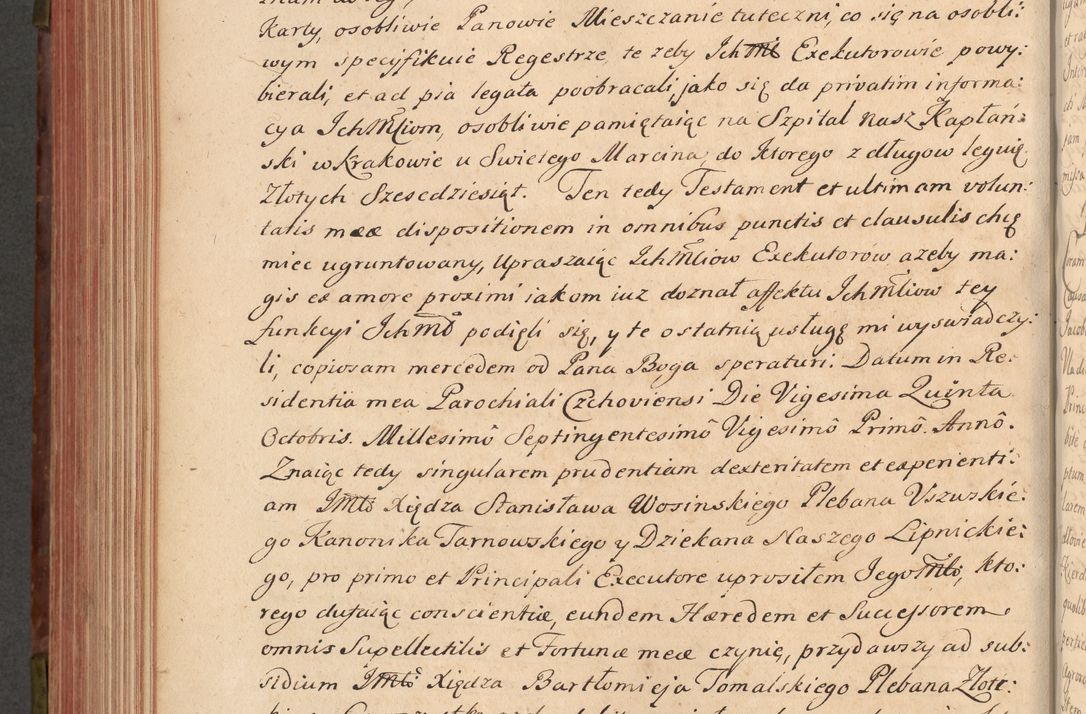 Karty, osobliwie Panowie Mieszczanie tuteczni, co się na osobli:
wym specyfikuie Regestrze, te zeby Ichmć Exekutorowie powy:
bierali, et ad pia legata poobracali, jako się da privatim informa:
cya Ichmciom, osobliwie pamiętaiąc na Szpital nasz Kapłań:
ski w Krakowie u Swietego Marcina, do ktorego z długow leguię
Złotych Szescdziesiąt. Ten tedy Testament et ultimam volun:
tatis meæ dispositionem in omnibus punctis et clausulis chcę
miec ugruntowany, Upraszaiąc Ichmciow Exekutorów azeby ma:
gis ex amore proximi iakom iuz doznał affektu Ichmciow tey
funkcyi Ichmć podięli się, y te ostatnią usługę mi wyswiadczy:
li, copiosam mercedem od Pana Boga speraturi. Datum in Re:
sidentia mea Parochiali Czchoviensi Die Vigesima Quinta
Octobris. Millesimô Septingentesimô Vigesimô Primô. Annô.
Znaiąc tedy singularem prudentiam dexteritatem et experienti:
am Imći Xiędza Stanisława Wosinskiego Plebana Uszwskie:
go Kanonika Tarnowskiego y Dziekana Naszego Lipnickie:
go, pro primo et Principali Executore uprosiłem Jegomći, kto:
rego dufaiąc conscientiæ, eundem Hæredem et Successorem
omnis Supellectilis et Fortunæ meæ czynię, przydawszy ad sub:
sidium Imći Xiędza Bartłomieja Tomalskiego Plebana Złote: